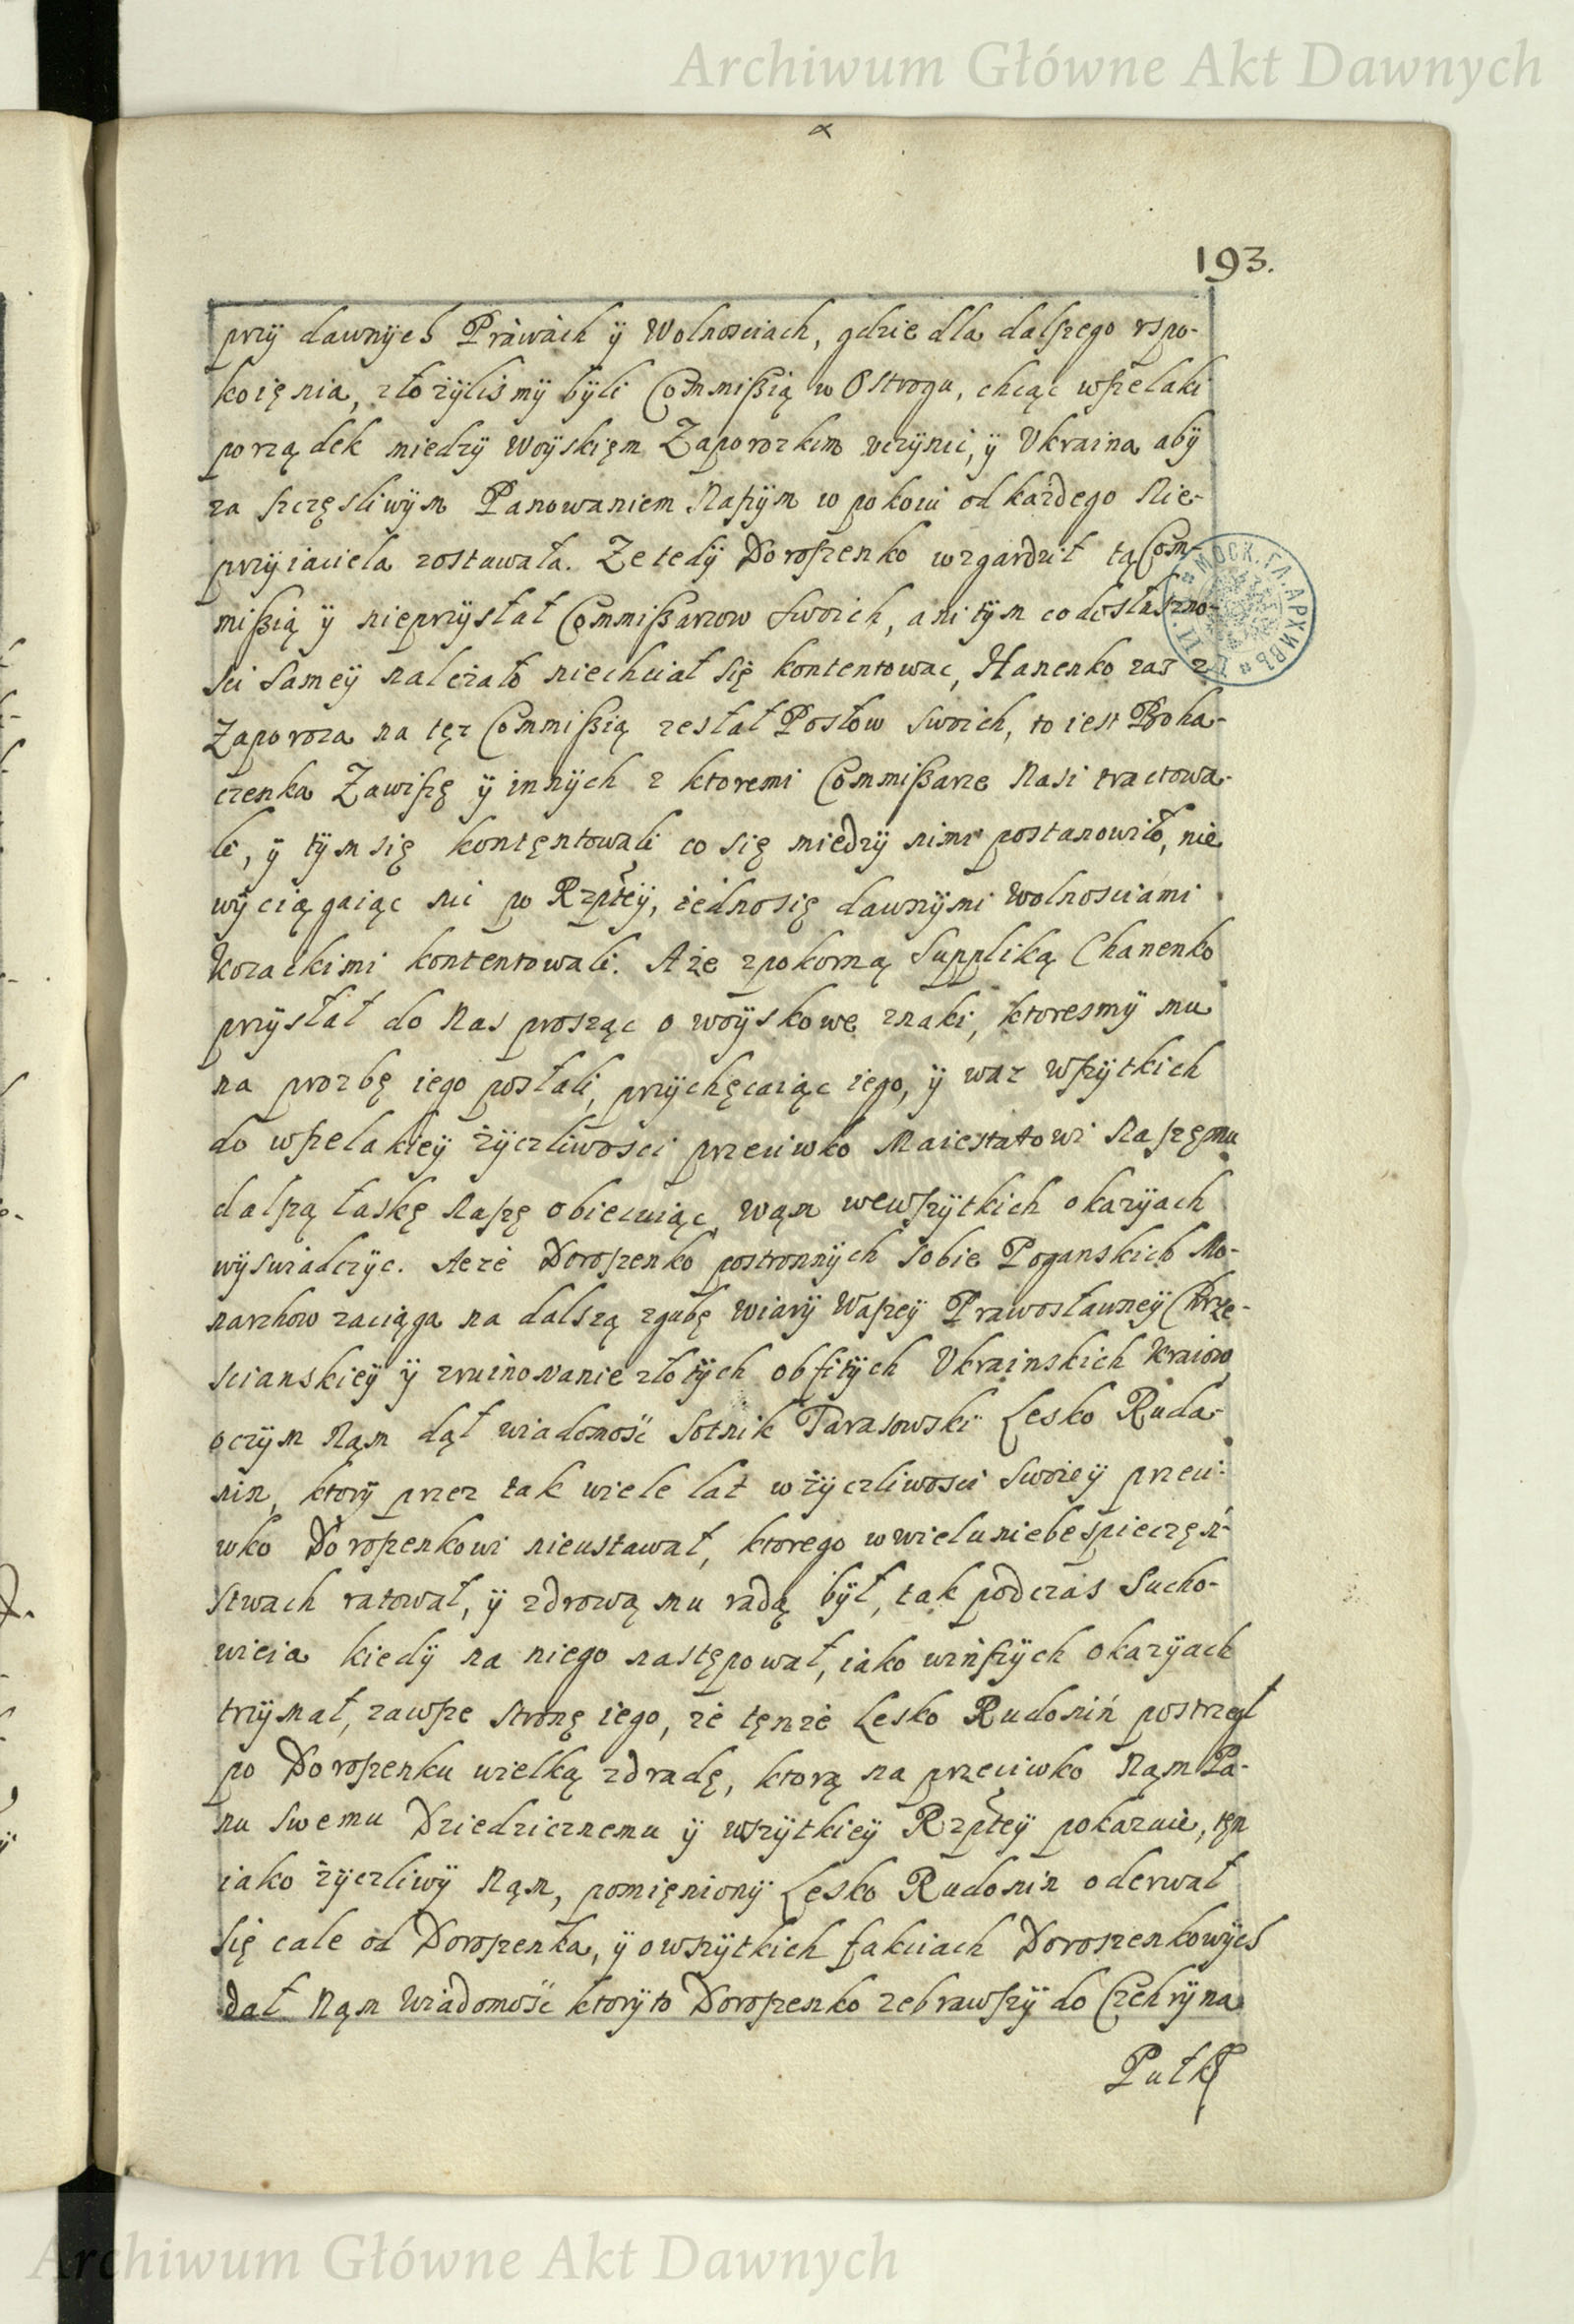 Archiwum Główne Akt Dawnych
193.
przÿ dawnÿch Prawach ÿ Wolnosciach, gdzie dla dalszego vspo-
koięnia, złożÿlismÿ bÿli Commißią w Ostrogu, chcąc wszelaki
porządek miedzÿ Woÿskięm Zaporozkim vczÿnić, ÿ Vkraina abÿ
za szczęsliwÿm Panowaniem Naszÿm w pokoiu od każdego Nie-
przÿiaciela zostawała. Ze tedÿ Doroszenko wzgardził tą Com-
mißią ÿ nieprzÿsłał Commißarzow Swoich, ani tÿm co do słuszno-
sci Sameÿ należało niechciał Się kontentowac, Hanenko zas z
Zaporoza na tęz Commißią zesłał Posłow Swoich, to iest Boha-
czenka Zawiszę ÿ innÿch z ktoremi Commißarze Nasi tractowa-
li, ÿ tÿm się kontęntowali co się miedzÿ nimi postanowiło, nie
wÿciągaiąc nic po Rzpłeÿ, iedno się dawnÿmi Wolnosciami
Kozackimi kontentowali. A że zpokorną Suppliką Chanenko
przÿsłał do Nas prosząc o woÿskowe znaki, ktoresmÿ mu
na prozbę iego posłali, przÿchęcaiąc iego, ÿ was wszÿtkich
do wszelakieÿ żÿczliwości przeciwko Maiestatowi Naszęmu
dalszą łaskę Naszę obiecuiąc wąm wewszÿtkich okazÿach
wÿswiadczÿc. Aeże Doroszenko postronnÿch Sobie Poganskich Mo-
narchow zaciąga na dalszą zgubę Wiarÿ Waszeÿ Prawosławneÿ Chrze-
scianskieÿ ÿ zruinowanie złotÿch obfitÿch Vkrainskich Kraiow
oczÿm Nąm dął wiadomość Sotnik Tarasowski Lesko Ruda-
nin, ktorÿ przez tak wiele lat w żÿczliwosci Swoieÿ przeci-
wko Doroszenkowi nieustawał, ktorego w wielu niebespieczęń-
stwach ratował, ÿ zdrową mu radą bÿł, tak podczas Sucho-
wieia kiedÿ na niego nastęnpował, iako winszÿch okazÿach
trzÿmał, zawsze stronę iego, że tęnże Lesko Rudoniń postrzegł
po Doroszenku wielką zdradę, ktorą na przeciwko Nąm Pa-
nu Swemu Dziedzicznemu ÿ wszÿtkieÿ Rzpłeÿ pokazuie, tęn
iako żÿczliwÿ Nąm, pomięnionÿ Lesko Rudonin oderwał
Się cale od Doroszenka, ÿ owszÿtkich fakciach Doroszenkowÿch
dał Nąm Wiadomość ktorÿ to Doroszenko zebrawszÿ do Czehrÿna
Pułk
Archiwum Główne Akt Dawnych